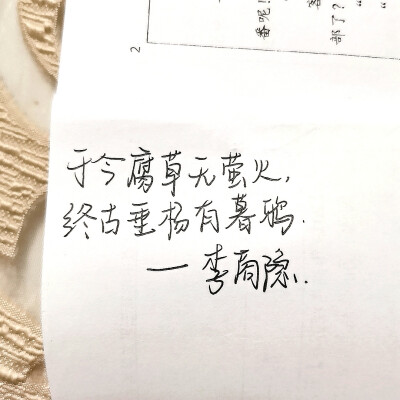 于今腐草无萤火,
终古垂杨有暮鸦.
—李商隐.
2
番呢!
部了?